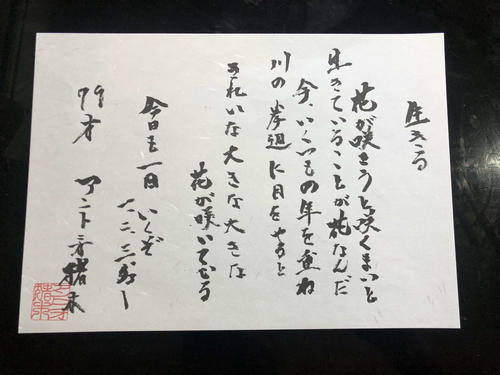 生きる
花が咲こうと咲くまいと
生きていることが花なんだ
今、いくつもの年を重ね
川の岸辺に目をやると
きれいな大きな大きな
花が咲いている
今日も一日いくぞ
一、二、三、ダー
79才 アントニオ猪木